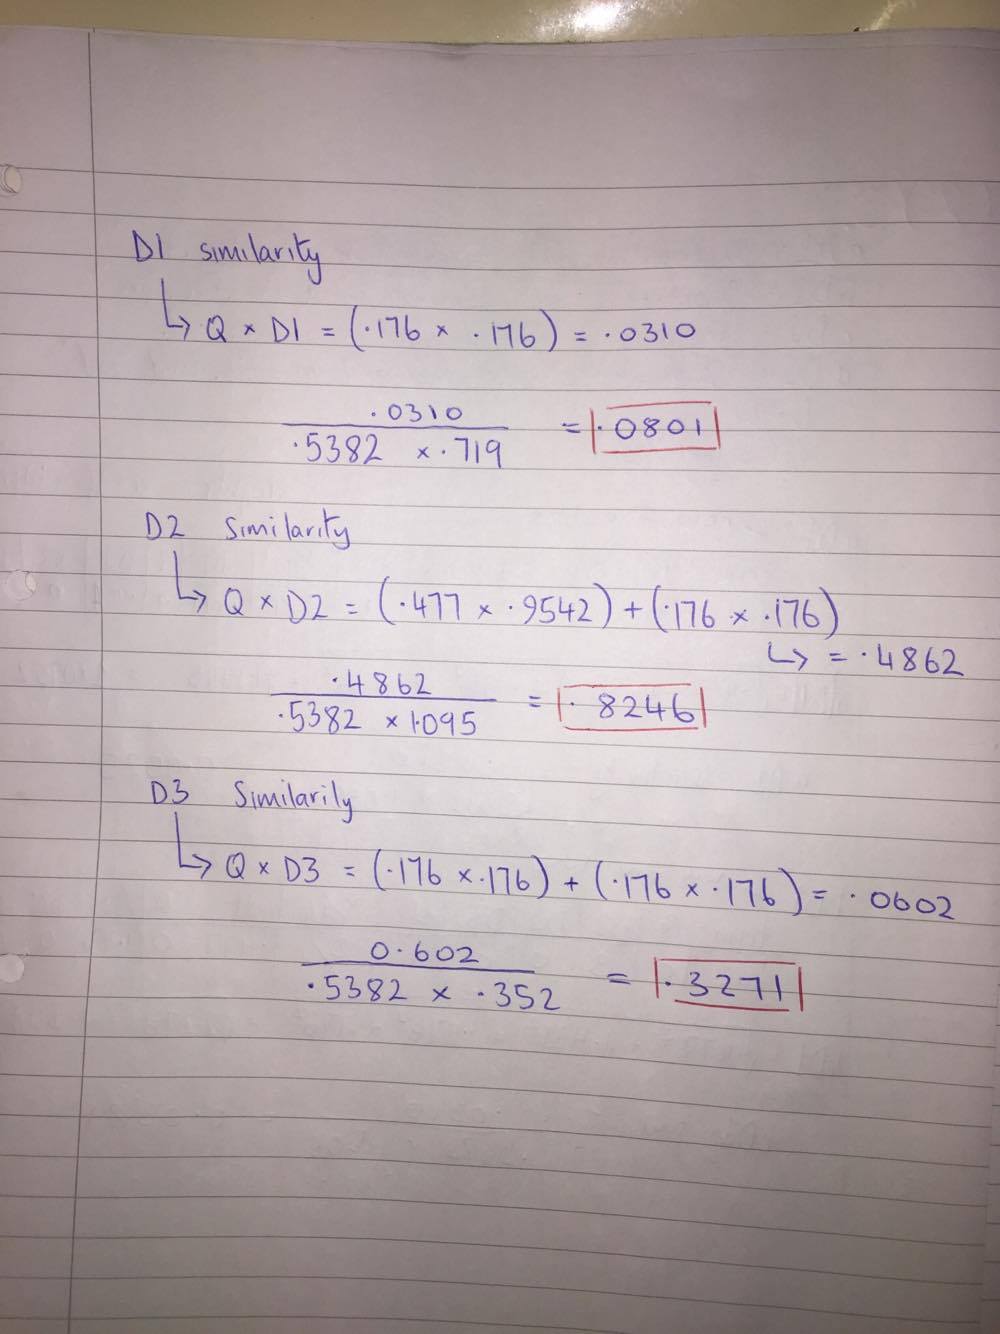 D1 similarity
↳ Q × D1 = (.176 × .176) = .0310
.0310
.5382 × .719
= .0801
D2 Similarity
↳ Q × D2 = (.477 × .9542) + (.176 × .176)
↳ = .4862
.4862
.5382 × 1.095
= .8246
D3 Similarily
↳ Q × D3 = (.176 × .176) + (.176 × .176) = .0602
0.602
.5382 × .352
= .3271